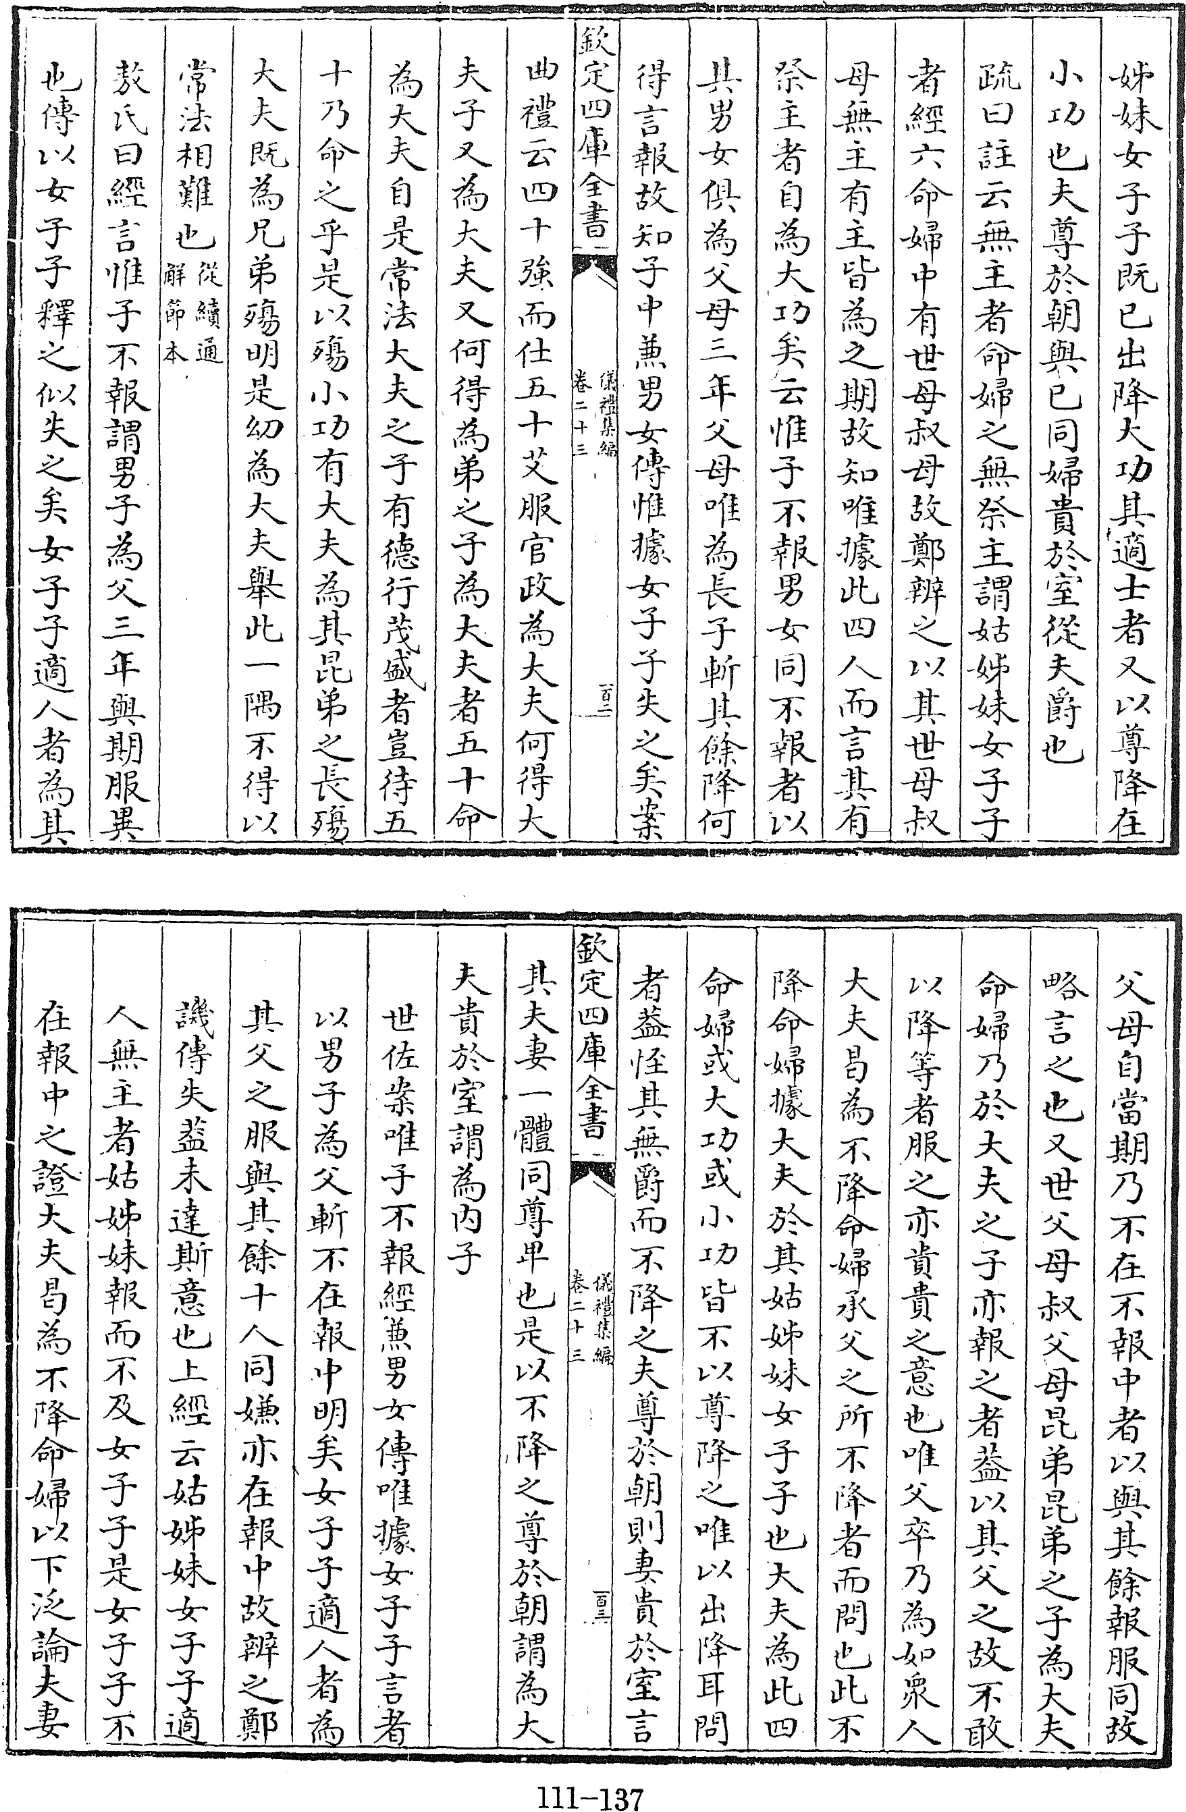 姊妹女子子既已出降大功其適士者又以尊降在
小功也夫尊於朝與已同婦貴於室從夫爵也
疏曰註云無主者命婦之無祭主謂姑姊妹女子子
者經六命婦中有世母叔母故鄭辨之以其世母叔
母無主有主皆為之期故知唯據此四人而言其有
祭主者自為大功矣云惟子不報男女同不報者以
其男女俱為父母三年父母唯為長子斬其餘降何
得言報故知子中兼男女傳惟據女子子失之矣案
欽定四庫全書
儀禮集編
卷二十三
一百二
曲禮云四十強而仕五十艾服官政為大夫何得大
夫子又為大夫又何得為弟之子為大夫者五十命
為大夫自是常法大夫之子有德行茂盛者豈待五
十乃命之乎是以殤小功有大夫為其昆弟之長殤
大夫既為兄弟殤明是幼為大夫舉此一隅不得以
常法相難也從續通
解節本
敖氏曰經言惟子不報謂男子為父三年與期服異
也傳以女子子釋之似失之矣女子子適人者為其
父母自當期乃不在不報中者以與其餘報服同故
略言之也又世父母叔父母昆弟昆弟之子為大夫
命婦乃於大夫之子亦報之者蓋以其父之故不敢
以降等者服之亦貴貴之意也唯父卒乃為如衆人
大夫曷為不降命婦承父之所不降者而問也此不
降命婦據大夫於其姑姊妹女子子也大夫為此四
命婦或大功或小功皆不以尊降之唯以出降耳問
者蓋怪其無爵而不降之夫尊於朝則妻貴於室言
欽定四庫全書
儀禮集編
卷二十三
一百三
其夫妻一體同尊卑也是以不降之尊於朝謂為大
夫貴於室謂為內子
世佐案唯子不報經兼男女傳唯據女子子言者
以男子為父斬不在報中明矣女子子適人者為
其父之服與其餘十人同嫌亦在報中故辨之鄭
譏傳失蓋未達斯意也上經云姑姊妹女子子適
人無主者姑姊妹報而不及女子子是女子子不
在報中之證大夫曷為不降命婦以下泛論夫妻
111-137